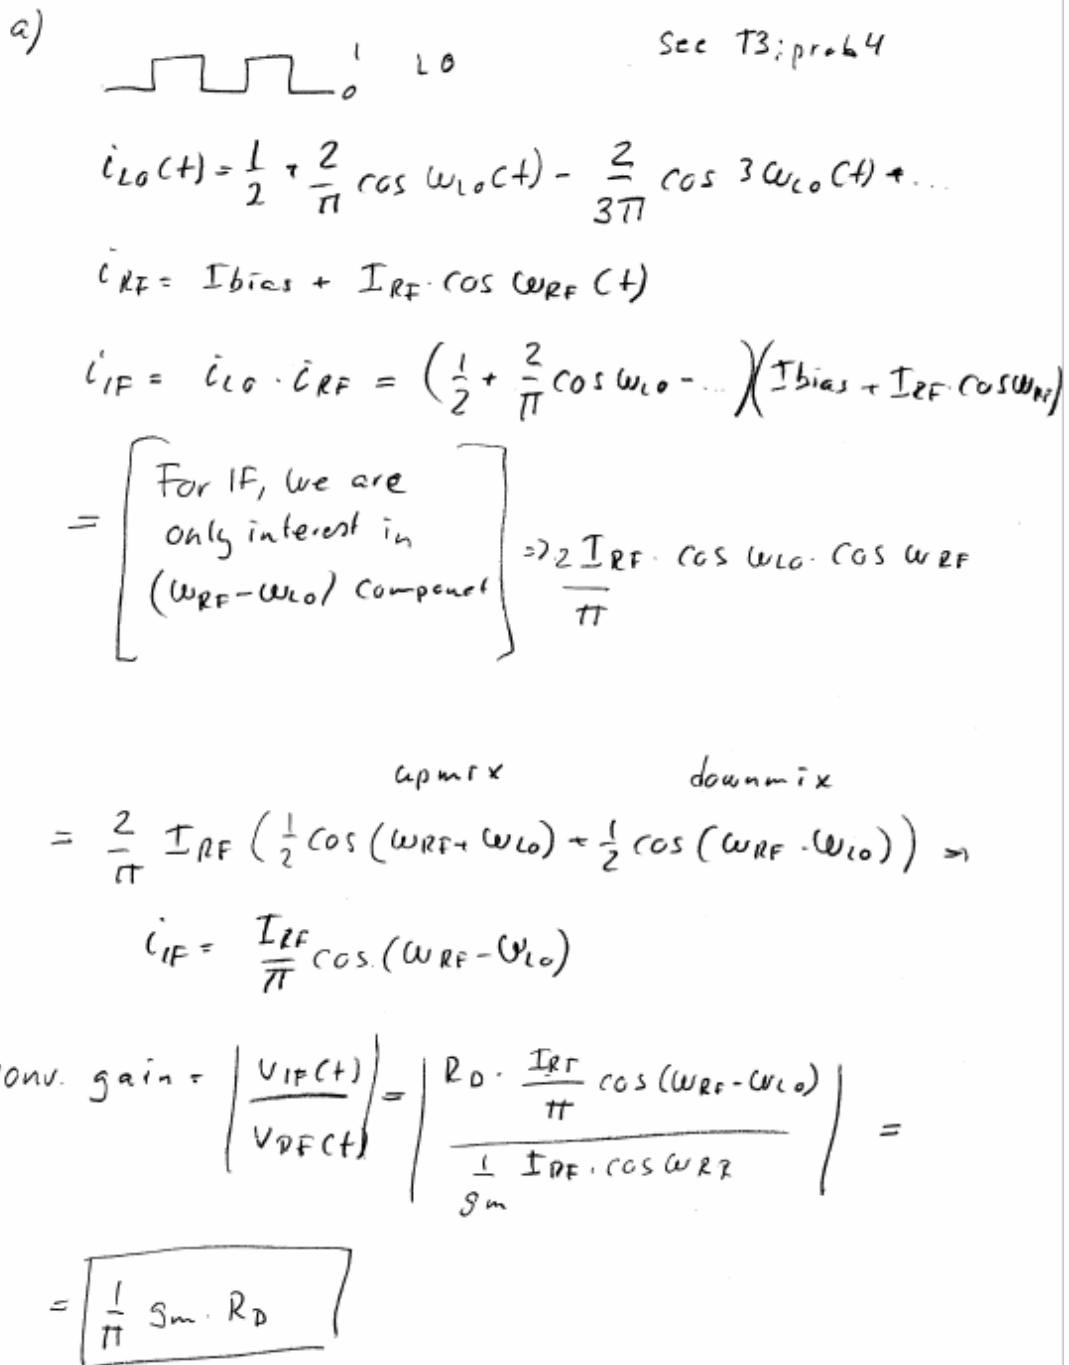 a)
1 LO See T3; prob 4
0
i_LO(t) = 1/2 + 2/π cos ω_LO(t) - 2/3π cos 3ω_LO(t) + ...
i_RF = Ibias + I_RF · cos ω_RF (t)
i_IF = i_LO · i_RF = (1/2 + 2/π cos ω_LO - ...)(Ibias + I_RF · cos ω_RF)
= [For IF, we are
only interest in
(ω_RF - ω_LO) componet] => 2/π I_RF · cos ω_LO · cos ω_RF
upmix downmix
= 2/π I_RF (1/2 cos (ω_RF + ω_LO) + 1/2 cos (ω_RF - ω_LO)) =>
i_IF = I_RF/π cos (ω_RF - ω_LO)
onv. gain = |V_IF(t) / V_RF(t)| = |R_D · I_RF/π cos (ω_RF - ω_LO) / 1/gm I_RF · cos ω_RF| =
= 1/π gm · R_D